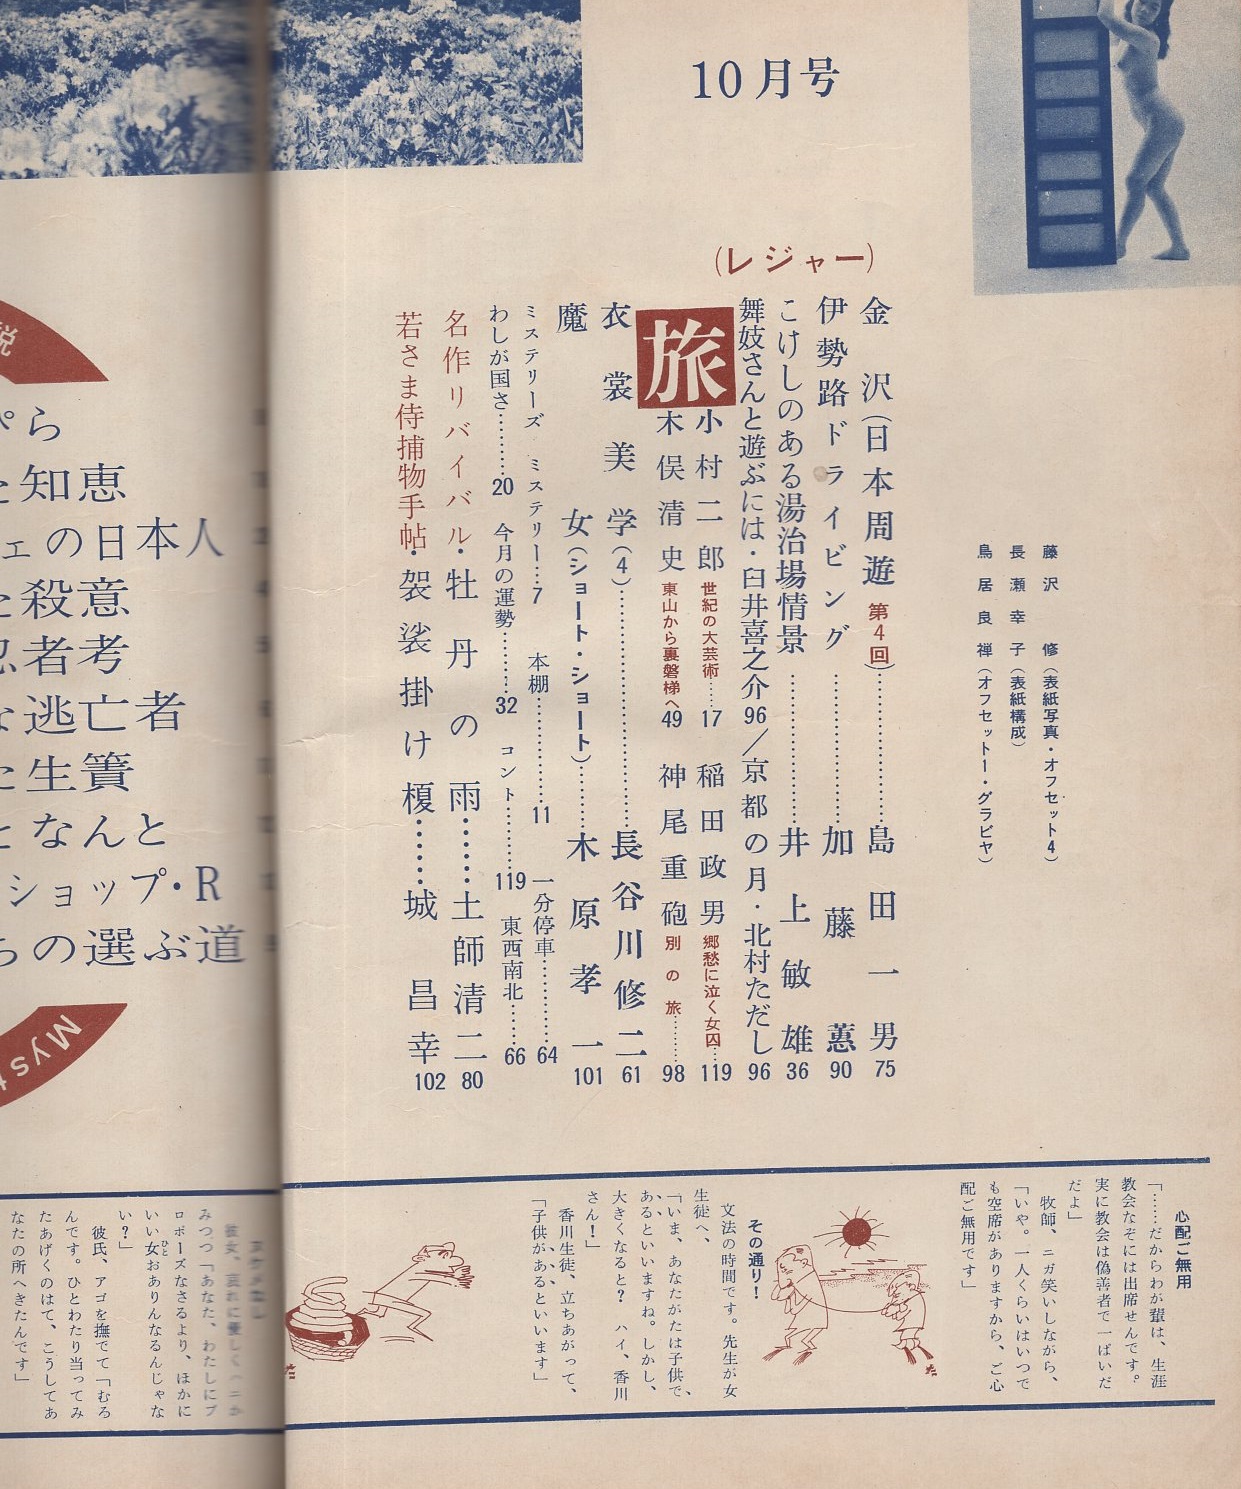 10月号
藤沢 修(表紙写真・オフセット4)
長瀬幸子(表紙構成)
鳥居良禅(オフセットー・グラビヤ)
(レジャー)
金沢(日本周遊 第4回)………島田一男 75
伊勢路ドライビング………加藤蕙 90
こけしのある湯治場情景………井上敏雄 36
舞妓さんと遊ぶには・臼井喜之介 96/京都の月・北村ただし 96
旅
小村二郎 世紀の大芸術……17 稲田政男 郷愁に泣く女囚…119
木俣清史 東山から裏磐梯へ 49 神尾重砲 別の旅………98
衣裳美学(4)………長谷川修二 61
魔女(ショート・ショート)………木原孝一 101
ミステリーズ ミステリー…7 本棚………11 一分停車………64
わしが国さ………20 今月の運勢………32 コント………119 東西南北……66
名作リバイバル・牡丹の雨……土師清二 80
若さま侍捕物手帖・袈裟掛け榎……城昌幸 102
説
ぺら
た知恵
ェの日本人
た殺意
忍者考
な逃亡者
た生簀
となんと
ショップ・R
ちの選ぶ道
Myst
心配ご無用
「……だからわが輩は、生涯
教会なそには出席せんです。
実に教会は偽善者で一ぱいだ
だよ」
牧師、ニガ笑いしながら、
「いや。一人くらいはいつで
も空席がありますから、ご心
配ご無用です」
その通り!
文法の時間です。先生が女
生徒へ、
「いま、あなたがたは子供で、
あるといいますね。しかし、
大きくなると? ハイ、香川
さん!」
香川生徒、立ちあがって、
「子供があるといいます」
みつつ「あなた、わたしにプ
ロポーズなさるより、ほかに
いい女おありんなるんじゃな
い?」
彼氏、アゴを撫でて「むろ
んです。ひとわたり当ってみ
たあげくのはて、こうしてあ
なたの所へきたんです」